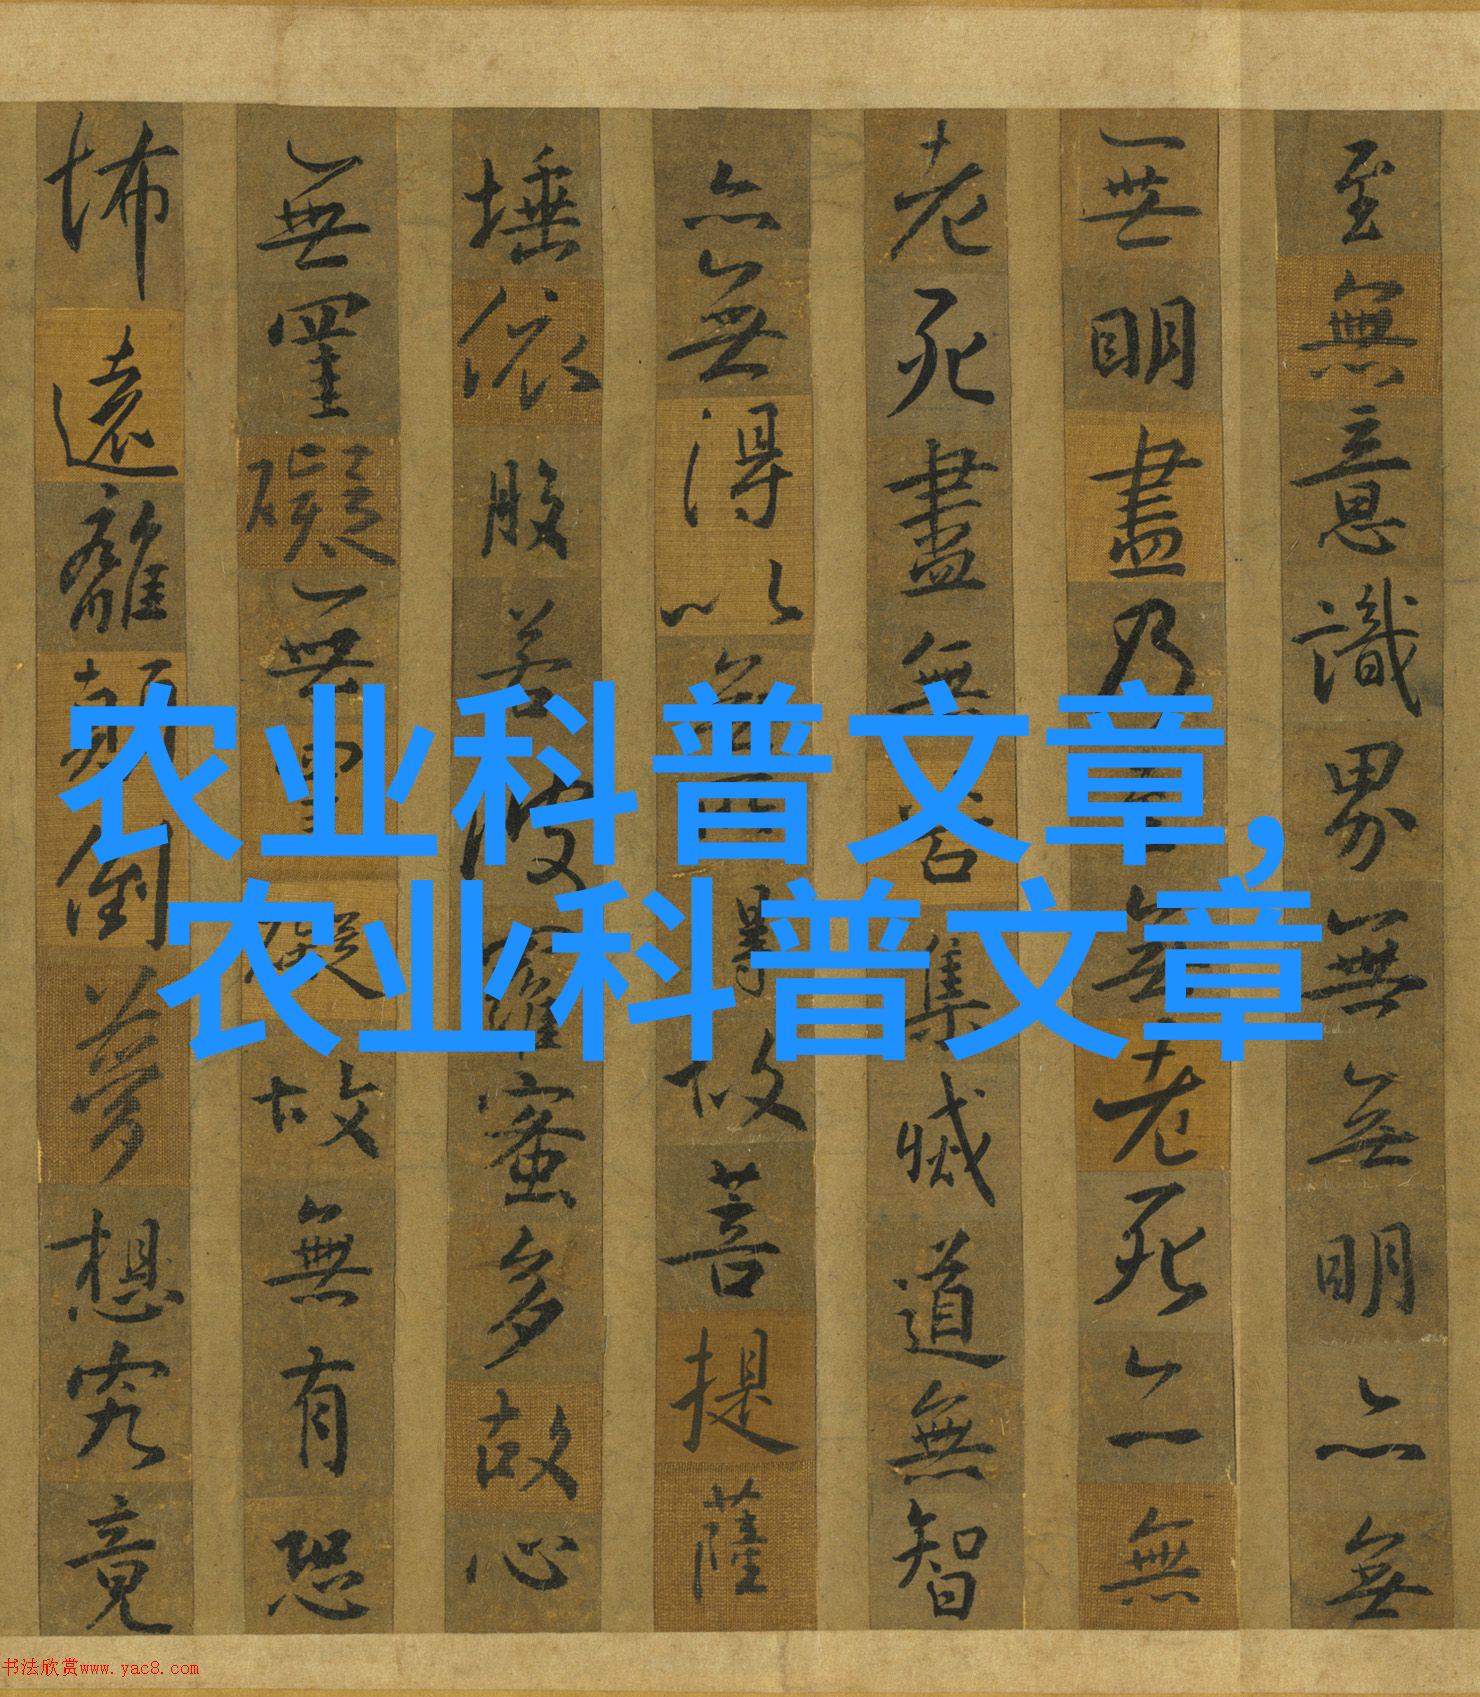 农业科普文章,
农业科普文章
至無意識界無無明亦無
無明盡乃至無老死亦無
老死盡無苦集滅道無智
亦無得以無所得故菩提薩
埵依般若波羅蜜多故心
無罣礙無罣礙故無有恐
怖遠離顛倒夢想究竟
书法欣赏www.yac8.com